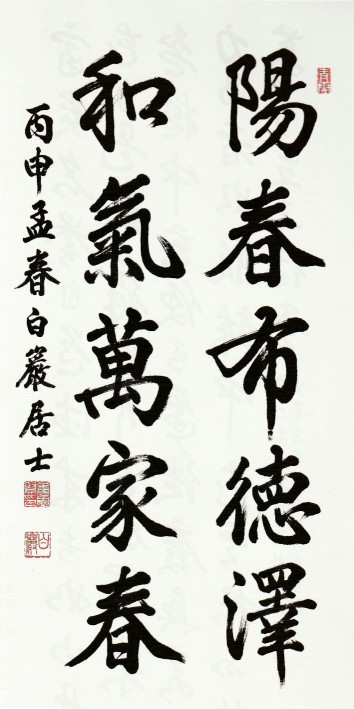 陽春布德澤
和氣萬家春
丙申孟春白巖居士